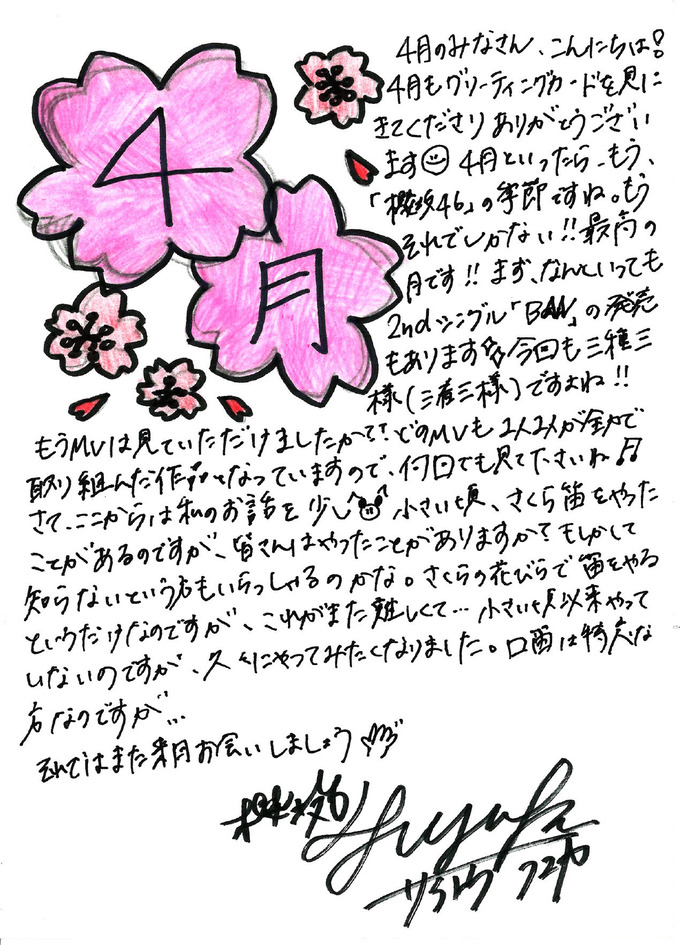 4月
4月のみなさん、こんにちは!
4月もグリーティングカードを見に
きてくださりありがとうござい
ます 4月といったら、もう、
「櫻坂46」の季節ですね。もう
それでしかない!!最高の
月です!! まず、なんといっても
2ndシングル「BAN」の発売
もあります 今回も三種三
様(三者三様)ですよね!!
もうMVは見ていただけましたか?? どのMVも1人1人が全力で
取り組んだ作品となっていますので、何回でも見て下さいね♬
さて、ここからは私のお話を少し 小さい頃、さくら笛をやった
ことがあるのですが、皆さんはやったことがありますか? もしかして
知らないという方もいらっしゃるのかな。さくらの花びらで笛をやる
というだけなのですが、これがまた難しくて… 小さい頃以来やって
いないのですが、久々にやってみたくなりました。口笛は特意な
方なのですが…
それではまた来月お会いしましょう
サイトウ フユカ